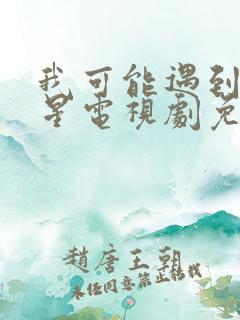 我可能遇到
星電視劇免
趙唐王朝
未任同意禁止轉載